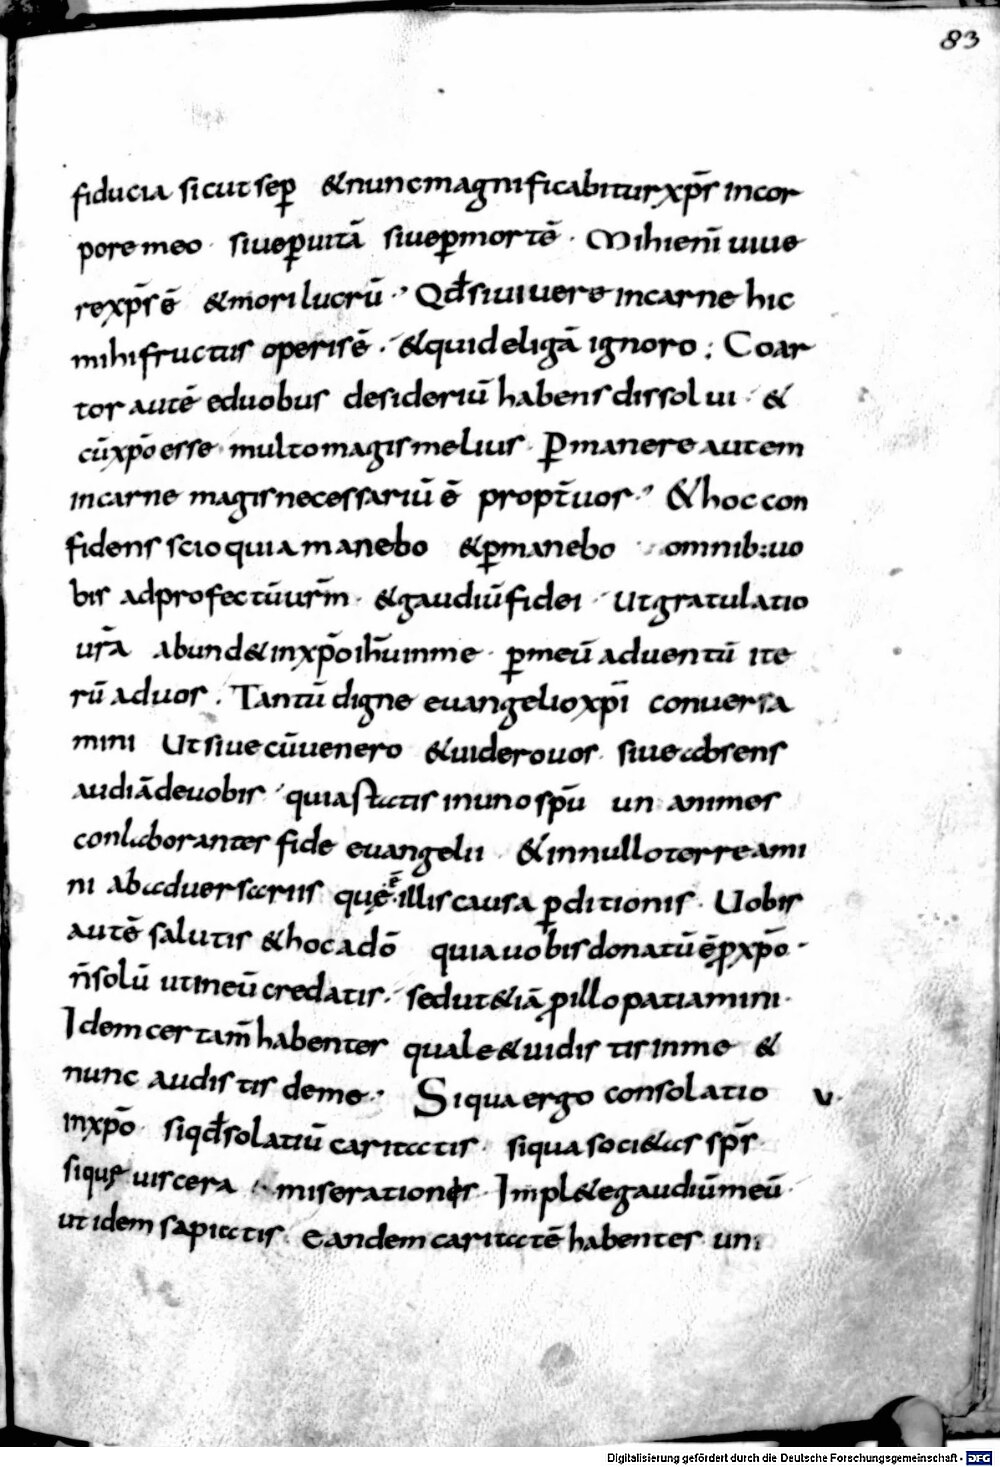 83
fiducia sicut sep̲ &nuncmagnificabiturxp̄s incor
poremeo · siuep̲uitā siuep̲mortē · Mihienī uiue
rexp̄s ē &morilucrū · Qđsiuiuereincarne hic
mihifructus operisē · &quideligā ignoro ; Coar
tor autē eduobus desideriū habensdissolui · &
cūxp̄oesse · multomagismelius · P̲manereautem
incarne magisnecessariū ē propt̄uos · &hoccon
fidens scioquiamanebo &p̲manebo omnib;uo
bis adprofectūur̄m · &gaudiūfidei · Utgratulatio
ur̄a abund&inxp̄oih̄uinme · p̲meū aduentū ite
rū aduos . Tantū digne euangelioxp̄i conuersa
mini Utsiuecūuenero &uiderouos · siueabsens
audiādeuobis · quiastatis inunosp̄u un animes
conlaborantes fide euangelii · &innulloterreami
ni abaduersariis quę ē illiscausa p̲ditionis · Uobis
autē salutis &hocadō quiauobisdonatūēp̲xp̄o ·
n̄solū utineūcredatis · sedut&iā p̲illopatiamini ·
Idemcertam̄habentes quale&uidistisinme &
nunc audistis deme · Siquaergo consolatio
v·
inxp̄o · siqđsolatiū caritatis · siquasoci&as sp̄s ·
siquę uiscera · miserationes · Impl&egaudiūmeū ·
ut idem sapiatis . eandemcaritatē habentes uni
Digitalisierung gefördert durch die Deutsche Forschungsgemeinschaft - DFG